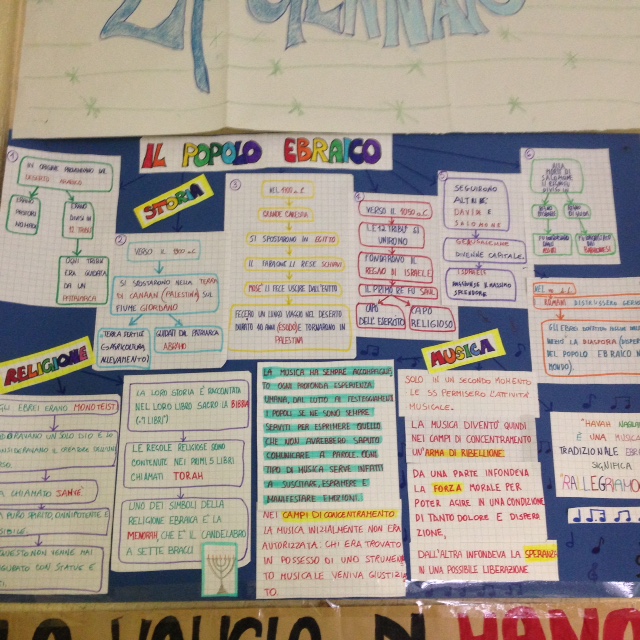 27 GENNAIO
IL POPOLO EBRAICO
STORIA
1
IN ORIGINE PROVENIVANO DAL
DESERTO ARABICO
ERANO
PASTORI
NOMADI
ERANO
DIVISI IN
12 TRIBÙ
OGNI TRIBÙ
ERA GUIDATA
DA UN
PATRIARCA
2
VERSO IL 1900 a.C
SI SPOSTARONO NELLA TERRA
DI CANAAN (PALESTINA) SUL
FIUME GIORDANO
TERRA FERTILE
(AGRICOLTURA,
ALLEVAMENTO)
GUIDATI DAL PATRIARCA
ABRAMO
3
NEL 1700 a.C
GRANDE CARESTIA
SI SPOSTARONO IN EGITTO
IL FARAONE LI RESE SCHIAVI
MOSÈ LI FECE USCIRE DALL'EGITTO
DOPO UN LUNGO VIAGGIO NEL DESERTO
DURATO 40 ANNI (ESODO) E TORNARONO IN
PALESTINA
4
VERSO IL 1050 a.C
LE 12 TRIBÙ SI
UNIRONO
FONDARONO IL
REGNO DI ISRAELE
IL PRIMO RE FU SAUL
CAPO
DELL'ESERCITO
CAPO
RELIGIOSO
5
SEGUIRONO
ALTRI RE
DAVID E
SALOMONE
GERUSALEMME
DIVENNE CAPITALE
ISRAELE
RAGGIUNSE IL MASSIMO
SPLENDORE
6
ALLA
MORTE DI
SALOMONE
IL REGNO
DIVISO IN
NEL
ROMANI DISTRUSSERO GERUSA
GLI EBREI
INIZIÒ LA DIASPORA (DISPER
DEL POPOLO EBRAICO NEL
MONDO)
RELIGIONE
GLI EBREI ERANO MONOTEISTI
ADORAVANO UN SOLO DIO E LO
CHIAMATO JAHVÈ
PURO SPIRITO, ONNIPOTENTE E
QUESTO NON VENNE MAI
STATUE E
LA LORO STORIA È RACCONTATA
NEL LORO LIBRO SACRO LA BIBBIA
LE REGOLE RELIGIOSE SONO
CONTENUTE NEI PRIMI 5 LIBRI
CHIAMATI TORAH
UNO DEI SIMBOLI DELLA
RELIGIONE EBRAICA È LA
MENORAH, CHE È IL CANDELABRO
A SETTE BRACCI
LA MUSICA HA SEMPRE ACCOMPAGNA
TO OGNI PROFONDA ESPERIENZA
UMANA, DAL LUTTO AI FESTEGGIAMENTI
I POPOLI SE NE SONO SEMPRE
SERVITI PER ESPRIMERE QUELLO
CHE NON AVREBBERO SAPUTO
COMUNICARE A PAROLE. OGNI
TIPO DI MUSICA SERVE INFATTI
A SUSCITARE, ESPRIMERE E
MANIFESTARE EMOZIONI.
NEI CAMPI DI CONCENTRAMENTO
LA MUSICA INIZIALMENTE NON ERA
AUTORIZZATA: CHI ERA TROVATO
IN POSSESSO DI UNO STRUMEN
TO MUSICALE VENIVA GIUSTIZIA
TO.
MUSICA
SOLO IN UN SECONDO MOMENTO
LE SS PERMISERO L'ATTIVITÀ
MUSICALE.
LA MUSICA DIVENTÒ QUINDI
NEI CAMPI DI CONCENTRAMENTO
UN'ARMA DI RIBELLIONE.
DA UNA PARTE INFONDEVA
LA FORZA MORALE PER
POTER AGIRE IN UNA CONDIZIONE
DI TANTO DOLORE E DISPERA
ZIONE,
DALL'ALTRA INFONDEVA LA SPERANZA
IN UNA POSSIBILE LIBERAZIONE
"HAVAH NAGILA
È UNA MUSICA
TRADIZIONALE EBRA
SIGNIFICA
"RALLEGRIAMO
LA VALIGIA DI HANA